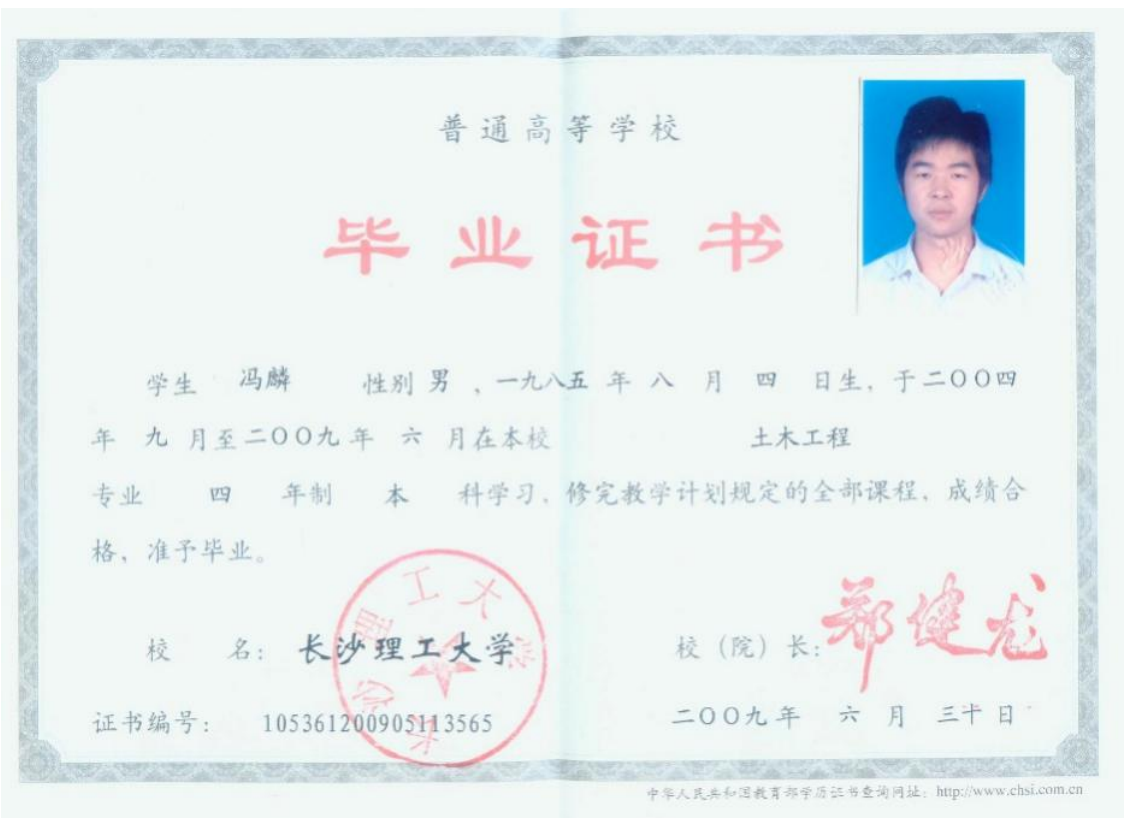 普通高等学校
毕业证书
学生 冯麟 性别 男 ，一九八五 年 八 月 四 日生，于二〇〇四
年 九 月至二〇〇九年 六 月在本校 土木工程
专业 四 年制 本 科学习，修完教学计划规定的全部课程，成绩合
格，准予毕业。
长沙理工大学
校 名： 长沙理工大学
校（院）长：郑健龙
证书编号： 105361200905113565
二〇〇九年 六 月 三十 日
中华人民共和国教育部学历证书查询网址：http://www.chsi.com.cn